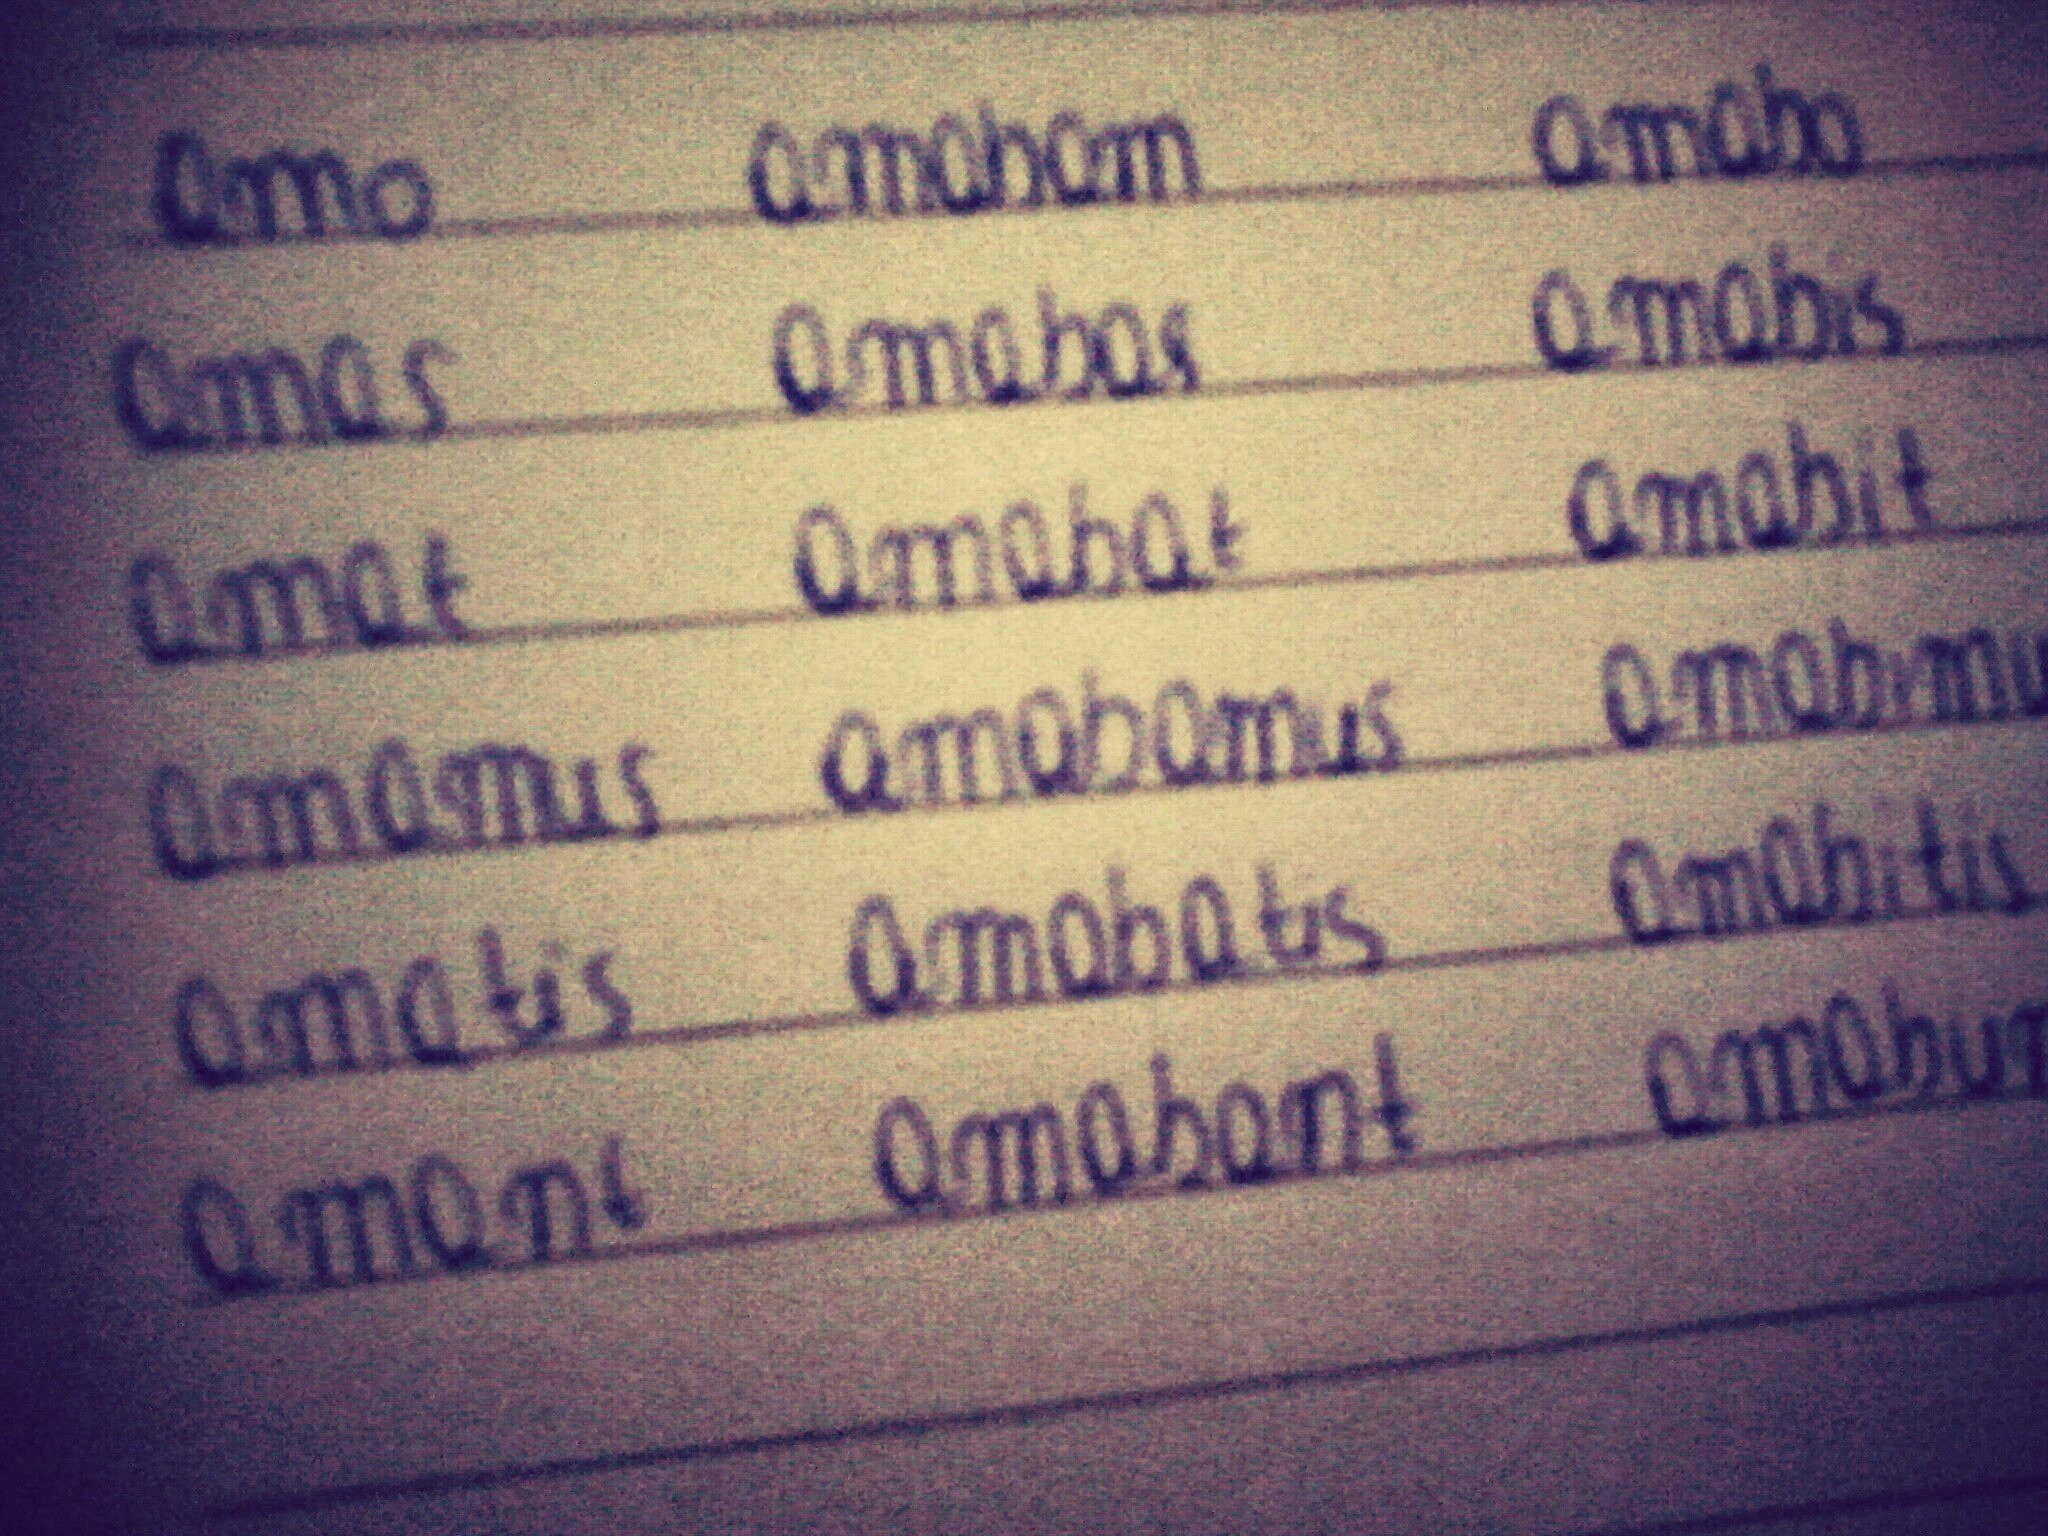 amo amabam amabo
amas amabas amabis
amat amabat amabit
amamus amabamus amabimu
amatis amabatis amabitis
amant amabant amabun